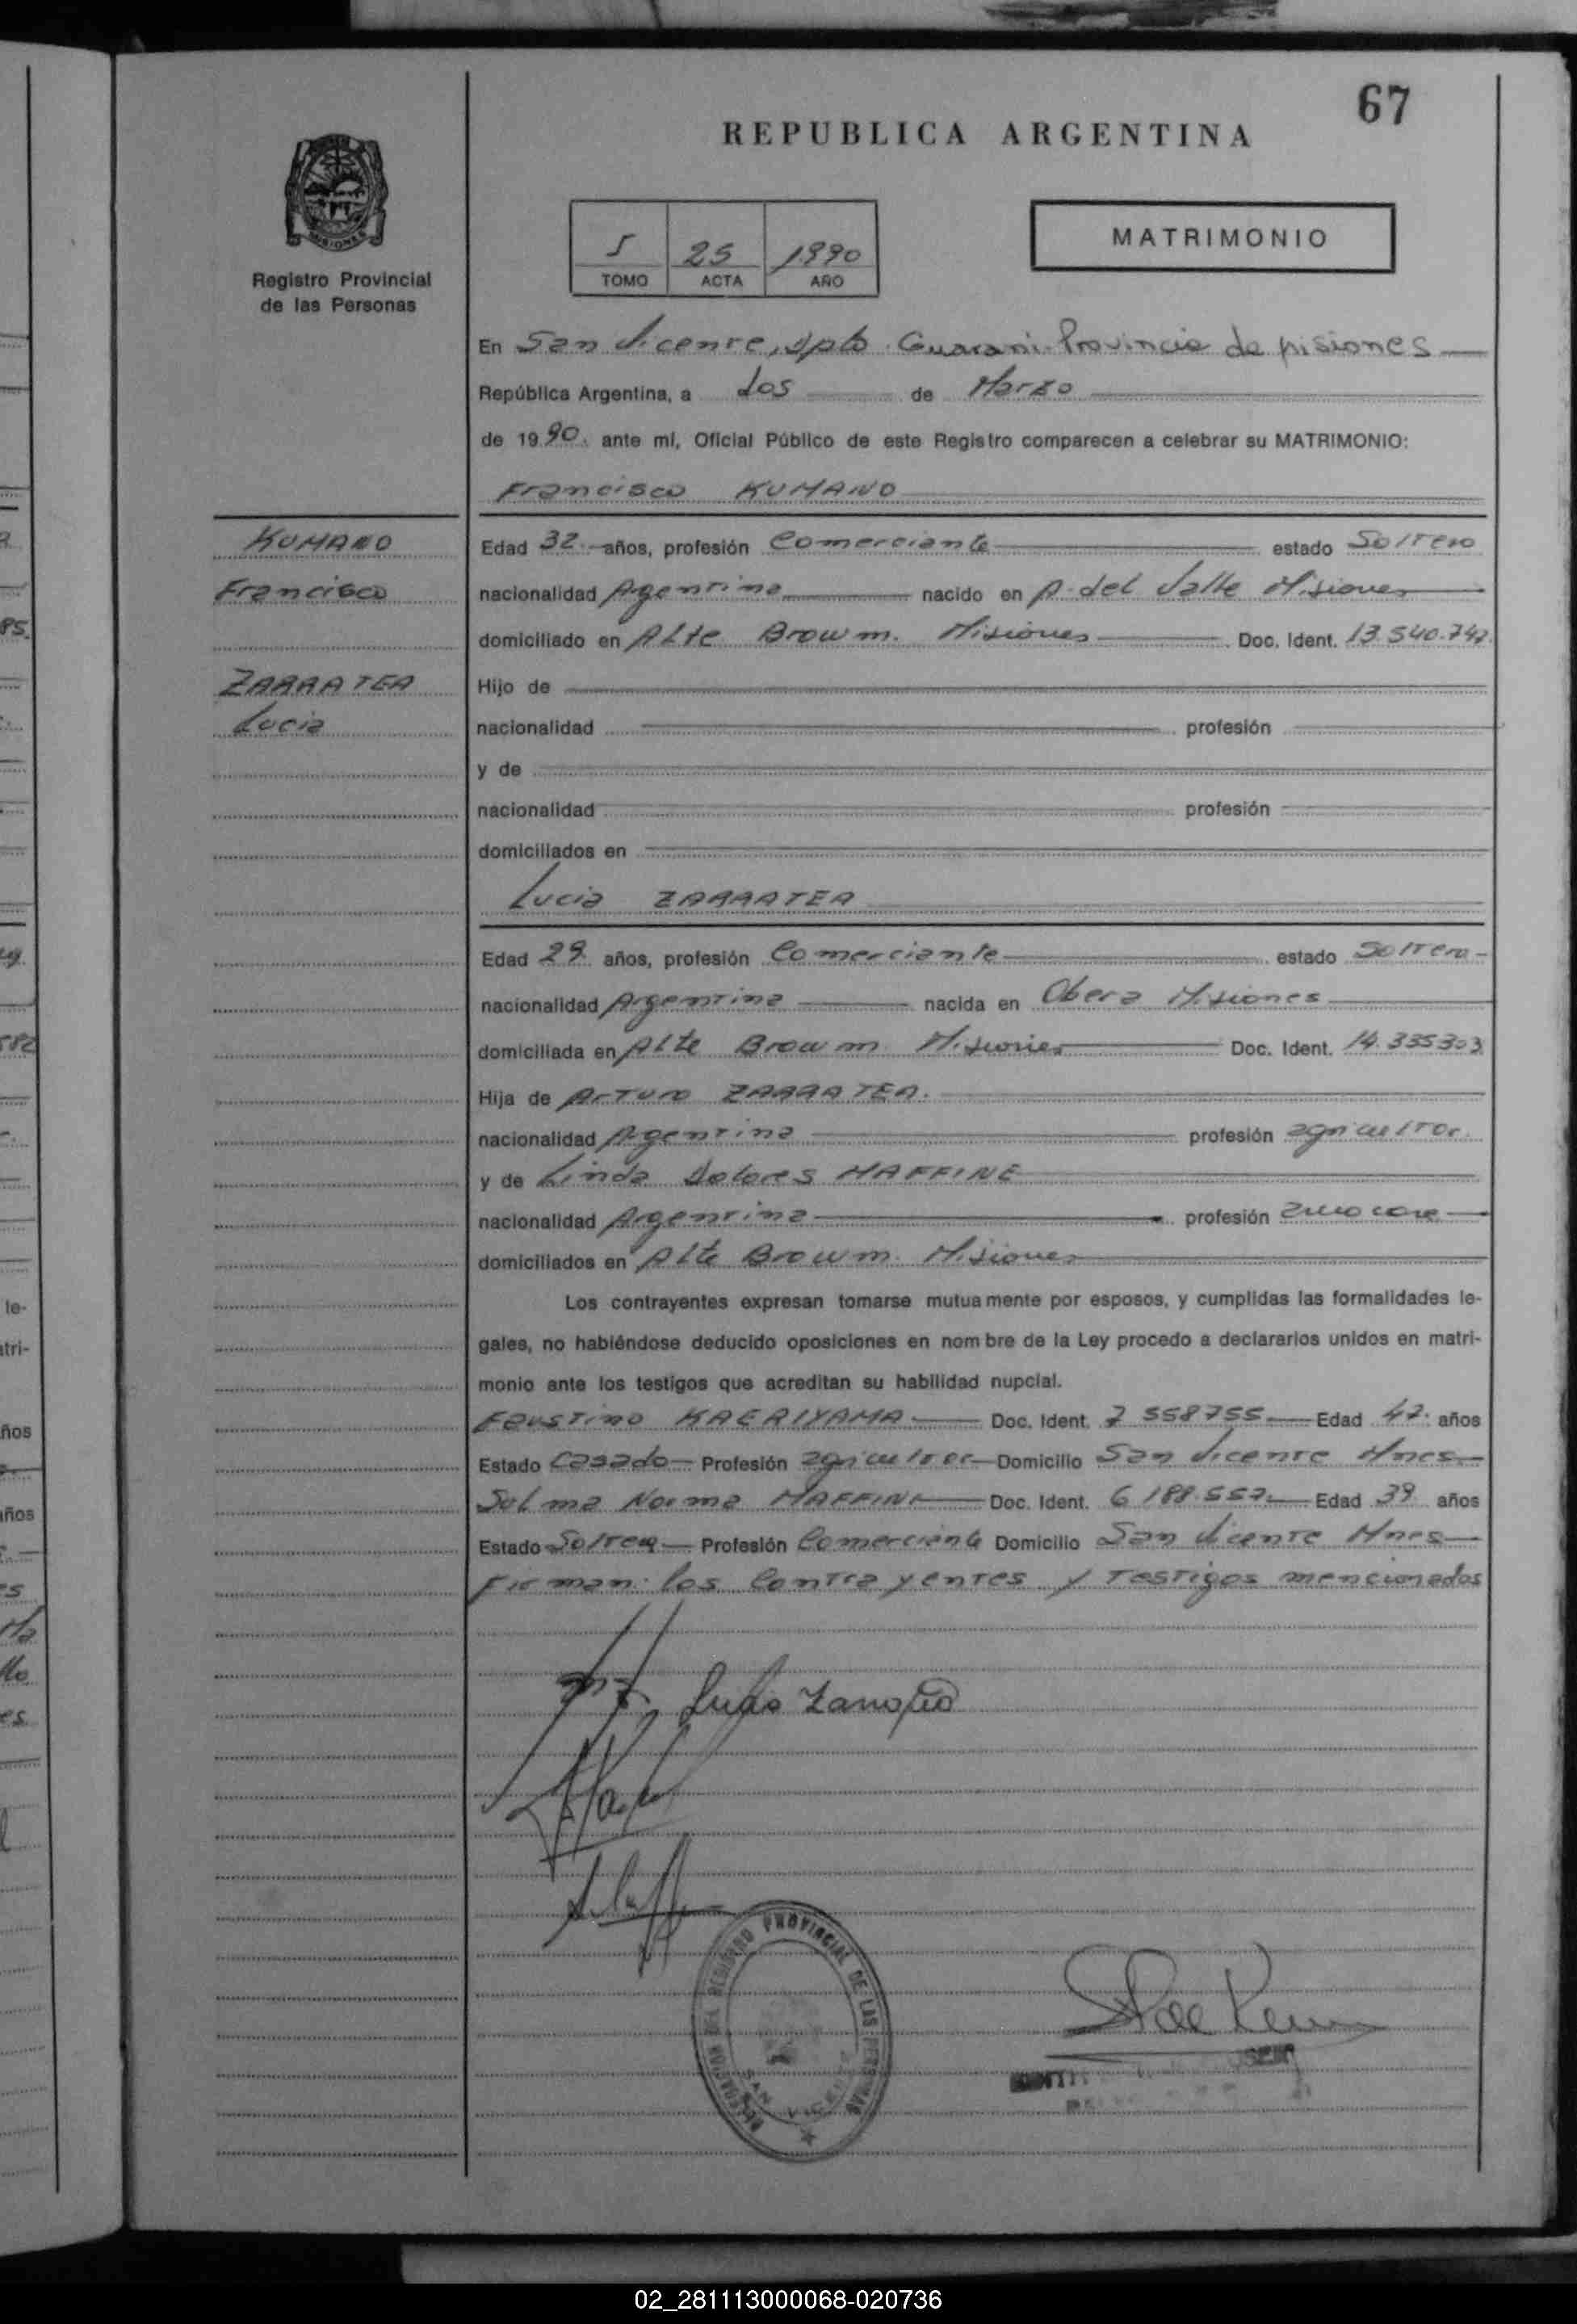 67
REPUBLICA ARGENTINA
MISIONES
Registro Provincial
de las Personas
5 25 1990
TOMO ACTA AÑO
MATRIMONIO
En San Vicente, dpto Guarani Provincia de Misiones
República Argentina, a dos de Marzo
de 1990. ante mí, Oficial Público de este Registro comparecen a celebrar su MATRIMONIO:
Francisco KUMANO
KUMANO
Francisco
ZARRATEA
Lucia
Edad 32 años, profesión Comerciante estado Soltero
nacionalidad Agentina nacido en A. del Valle Misiones
domiciliado en Alte Browm. Misiones Doc. Ident. 13.540.742
Hijo de
nacionalidad profesión
y de
nacionalidad profesión
domiciliados en
Lucia ZARRATEA
Edad 29 años, profesión Comerciante estado Soltera
nacionalidad Argentina nacida en Obera Misiones
domiciliada en Alte Browm Misiones Doc. Ident. 14.335303
Hija de Arturo ZARRATEA.
nacionalidad Argentina profesión agricultor.
y de Linda Dolores MAFFINE
nacionalidad Argentina profesión
domiciliados en Alte Browm. Misiones
Los contrayentes expresan tomarse mutuamente por esposos, y cumplidas las formalidades le-
gales, no habiéndose deducido oposiciones en nombre de la Ley procedo a declararlos unidos en matri-
monio ante los testigos que acreditan su habilidad nupcial.
Faustino KAERIYAMA Doc. Ident. 7 558755 Edad 47. años
Estado Casado Profesión agricultor Domicilio San Vicente Mnes
Selma Norma MAFFINI Doc. Ident. 6 188.557 Edad 39 años
Estado Soltera Profesión Comerciante Domicilio San Vicente Mnes
Firman: los Contrayentes y Testigos mencionados
REGISTRO PROVINCIAL DE LAS PERSONAS
SAN VICENTE
02_281113000068-020736